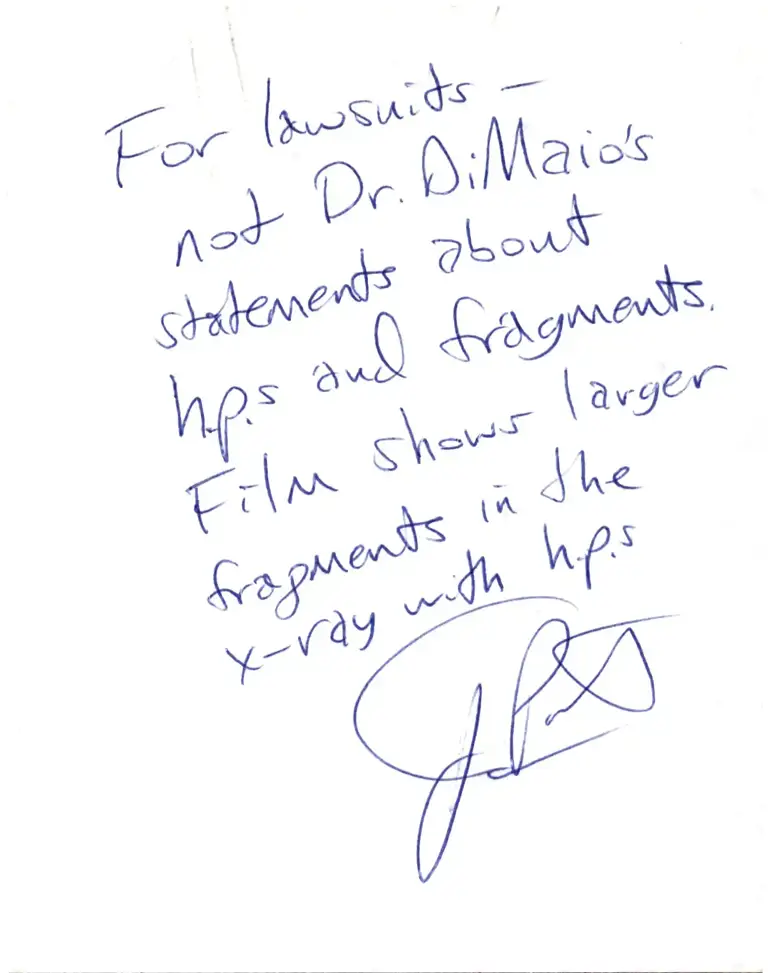 For lawsuits –
not Dr. DiMaio's
statements about
h.p.s and fragments.
Film shows larger
fragments in the
x-ray with h.p.s